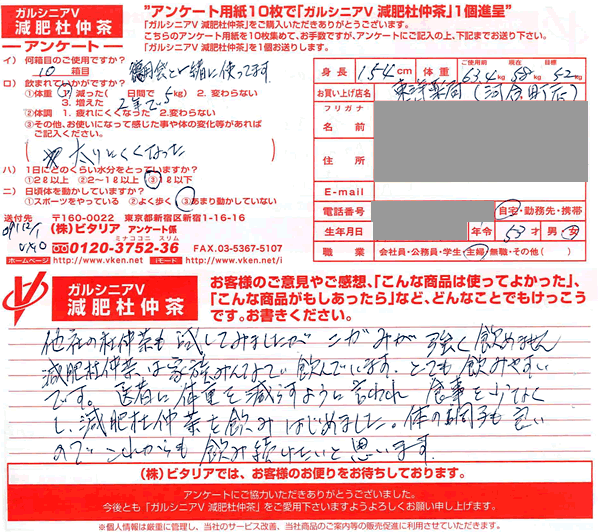 ガルシニアV
減肥杜仲茶
アンケート
"アンケート用紙10枚で「ガルシニアV 減肥杜仲茶」1個進呈"
「ガルシニアV 減肥杜仲茶」をご購入いただきありがとうございます。
こちらのアンケート用紙を10枚集めて、お手数ですが、アンケートにご記入の上、下記までお送り下さい。
「ガルシニアV 減肥杜仲茶」を1個お送りします。
イ) 何箱目のご使用ですか?
10 箱目
ロ) 飲まれていかがですか?
①体重 1. 減った( 2年で 日間で 5 kg) 2. 変わらない
3. 増えた
②体調 1. 疲れにくくなった 2. 変わらない
③その他、お使いになって感じた事や体の変化等があれば
ご記入ください。
太りにくくなった
ハ) 1日にどのくらい水分をとっていますか?
①2ℓ以上 ②2〜1ℓ以上 ③1ℓ以下
ニ) 日頃体を動かしていますか?
①スポーツをやっている ②よく歩く ③あまり動いていない
身長 154cm 体重 ご使用前 63.4kg 現在 58kg 目標 52kg
お買い上げ店名 東洋薬局(河合町店)
フリガナ
名前
住所
E-mail
電話番号 自宅・勤務先・携帯
生年月日 年令 53才 男・女
職業 会社員・公務員・学生・主婦・無職・その他( )
送付先 〒160-0022 東京都新宿区新宿1-16-16
(株)ビタリア アンケート係
ミナココニ スリム
0120-3752-36 FAX.03-5367-5107
ホームページ http://www.vken.net iモード http://www.vken.net/i
ガルシニアV
減肥杜仲茶
お客様のご意見やご感想、「こんな商品は使ってよかった」、
「こんな商品がもしあったら」など、どんなことでもけっこう
です。お書きください。
他社の杜仲茶も試してみましたがニガみが強く飲めません
減肥杜仲茶は家族みんなで飲んでいます。とても飲みやすい
です。医者に体重を減らすように言われ 食事を少なく
し、減肥杜仲茶を飲みはじめました。体の調子も良い
のでこれからも飲み続けたいと思います。
(株)ビタリアでは、お客様のお便りをお待ちしております。
アンケートにご協力いただきありがとうございました。
今後とも「ガルシニアV 減肥杜仲茶」をご愛用下さいますようよろしくお願い申し上げます。
※個人情報は厳重に管理し、当社のサービス改善、当社商品のご案内等の販売促進に利用させていただきます。